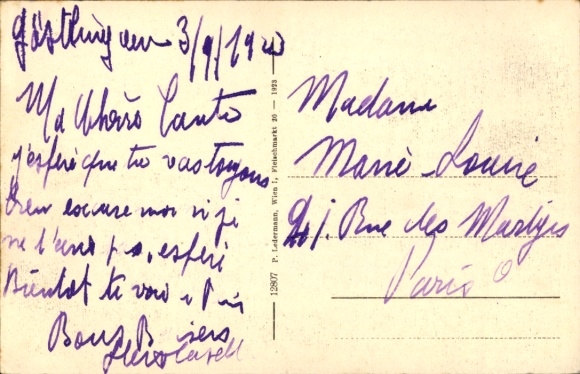 Göstling den 3/9/192
Ma Chère Tante
j'espère que tu vas toujours
bien excuse moi si je
ne t'
Bientot te voir a Paris
Bons Baisers
12807 P. Ledermann, Wien I, Fleischmarkt 20 — 1923
Madame
Marie Louise
Rue des Martyrs
Paris